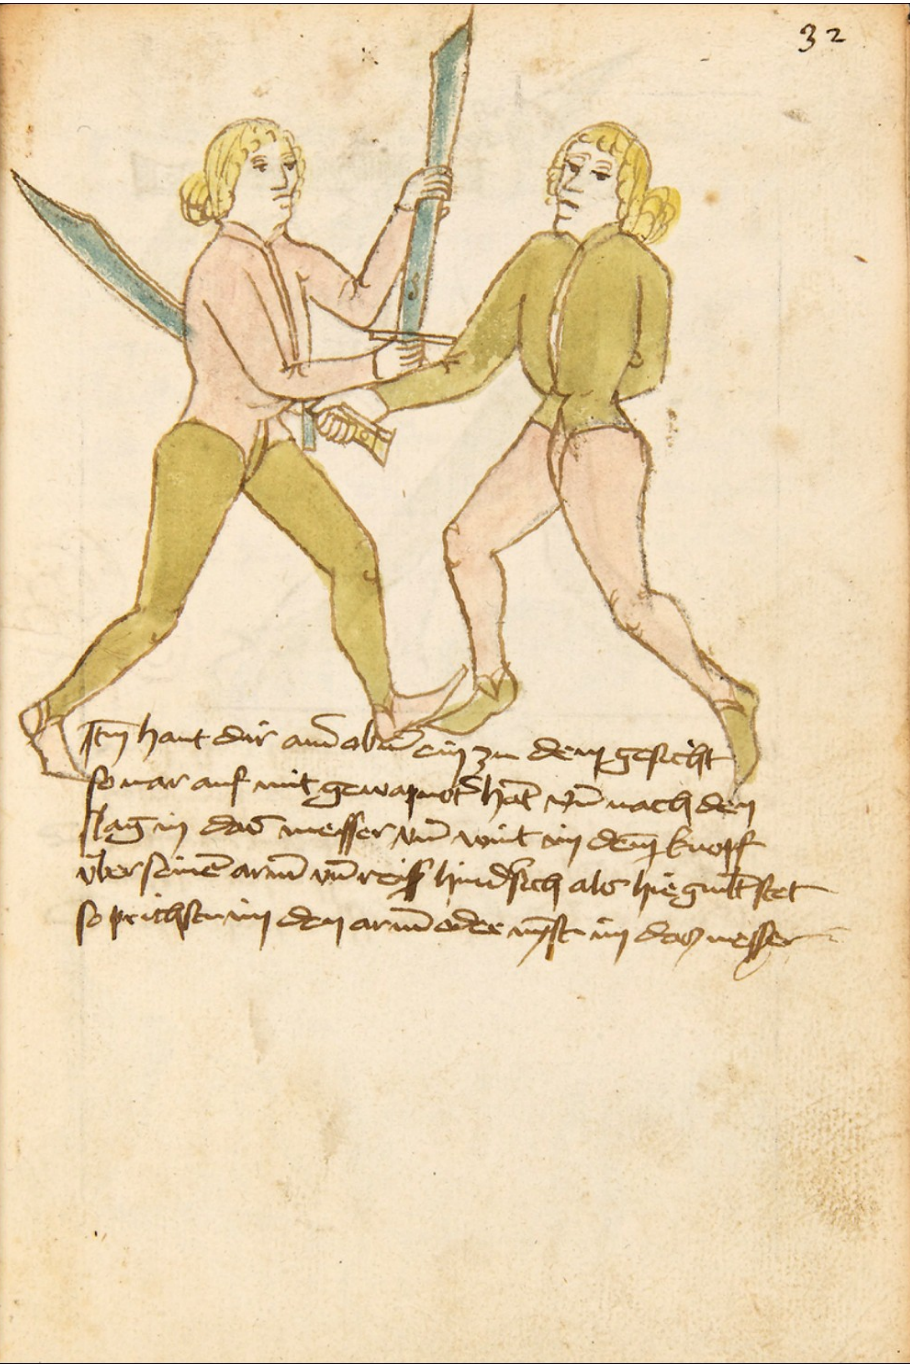 32
Itm̄ haut dir ainer oben ein zu dem gesicht
so var auf mit gewapnot̄ hāt vn̄ nach dem
slag in das messer vn̄ wint im den knopf
vber seinē arm̄ vn̄ reiß hindersich als hie gml̄t stet
so prichstu im den arm̄ oder nymst im das messer